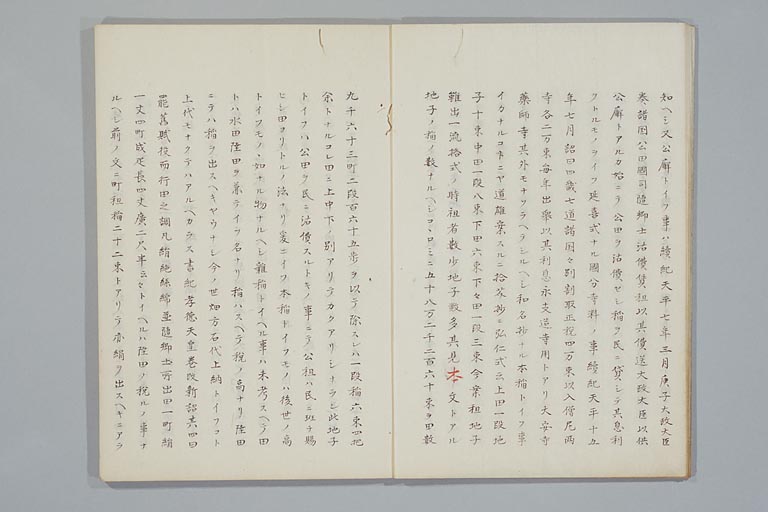 知ヘシ又公廨トイフ事ハ續紀天平七年三月庚子大政大臣
奏諸国公田國司隨郷土沽價賃租以其價送大政大臣以供
公廨トアルカ始ニテ公田ヲ沽價セシ稲ヲ民ニ貸シテ其息利
ヲトルモノヲイフ延喜式ナル國分寺料ノ事續紀天平十五
年七月詔曰四畿七道諸国々別割取正税四万束以入僧尼両
寺各二万束毎年出擧以其利息永支造寺用トアリ大安寺
藥師寺其外モナソラヘテシルヘシ和名抄ナル本稲トイフ事
イカナルコトニヤ道雄案スルニ拾芥抄ニ弘仁式云上田一段地
子十束中田一段八束下田六束下々田一段三束今案租地子
難出一流格式ノ時租者数少地子数多其見本文トアル
地子ノ稲ノ数ナルヘシコヽロミニ五十八万二千二百六十束ヲ田数
九千六十三町二段百六十五歩ヲ以テ除スレハ一段稲六束四把
余トナルコレ田ニ上中下ノ別アリテカクアリシナラン此地子
トイフハ公田ヲ民ニ沽價スルトキノ事ニテ公租ハ民ニ班チ賜
ヒシ田ヨリトルノ法ナリ爰ニイフ本稲トイフモノハ後世ノ高
トイフモノヽ如ナル物ナルヘシ雜稲トイヘル事ハ未考スヘテ田
トハ水田陸田ヲ兼テイフ名ナリ稲ハスヘテ税ノ高ナリ陸田
ニテハ稲ヲ出スヘキヤウナシ今ノ世畑方石代上納トイフコト
上代モナクテハアルヘカラス書紀孝徳天皇巻改新詔其四曰
罷舊賦役而行田之調凡絹絁絲綿並隨郷土所出田一町絹
一丈四町成疋長四丈廣二尺半云々トイヘルハ陸田ノ税ルノ事ナ
ルヘシ前ノ文ニ町租稲二十二束トアリテ亦絹ヲ出スヘキニアラ